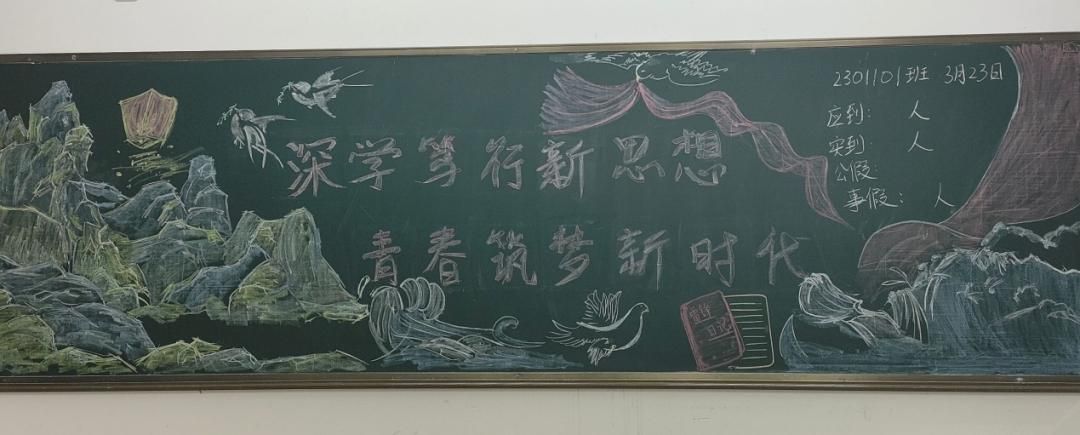 深学笃行新思想
青春筑梦新时代
2301101班 3月23日
应到: 人
实到: 人
公假:
事假: 人
雷锋
日记